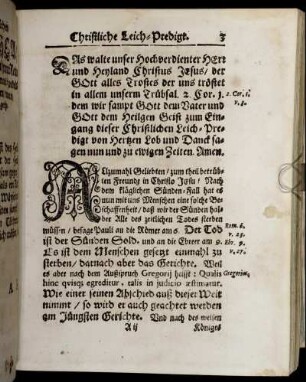 Christliche Leich-Predigt. 3
DAs walte unser Hochverdienter HErr
und Heyland Christus JEsus / der
GOtt alles Trostes der uns tröstet
in allem unserm Trübsal. 2 Cor. 1. 2. Cor. 1.
dem wir sampt GOtt dem Vater und v. 4.
GOtt dem Heilgen Geist zum Ein-
gang dieser Christlichen Leich-Pre-
digt von Hertzen Lob und Danck sa-
gen nun und zu ewigen Zeiten. Amen.
ALlzumahl Geliebten / zum theil betrüb-
ten Freunde in Christo Jesu / Nach
dem kläglichen Sünden-Fall hat es
nun mit uns Menschen eine solche Be-
schaffenheit / daß wir der Sünden hal-
ber Alle des zeitlichen Todes sterben
müssen / besage Pauli an die Römer am 6. Der Tod Rom. 6.
ist der Sünden Sold. und an die Ebreer am 9. v. 23. Ebr. 9.
Es ist dem Menschen gesetzt einmahl zu v. 27.
sterben / darnach aber das Gerichte. Weil
es aber nach dem Außspruch Gregorij heisst: Qualis Gregorius.
hinc quisq; egreditur, talis in judicio æstimatur.
Wie einer seinen Abschied auß dieser Welt
nimmt / so wird er auch geachtet werden
am Jüngsten Gerichte. Und nach des weisen
A ij Königes